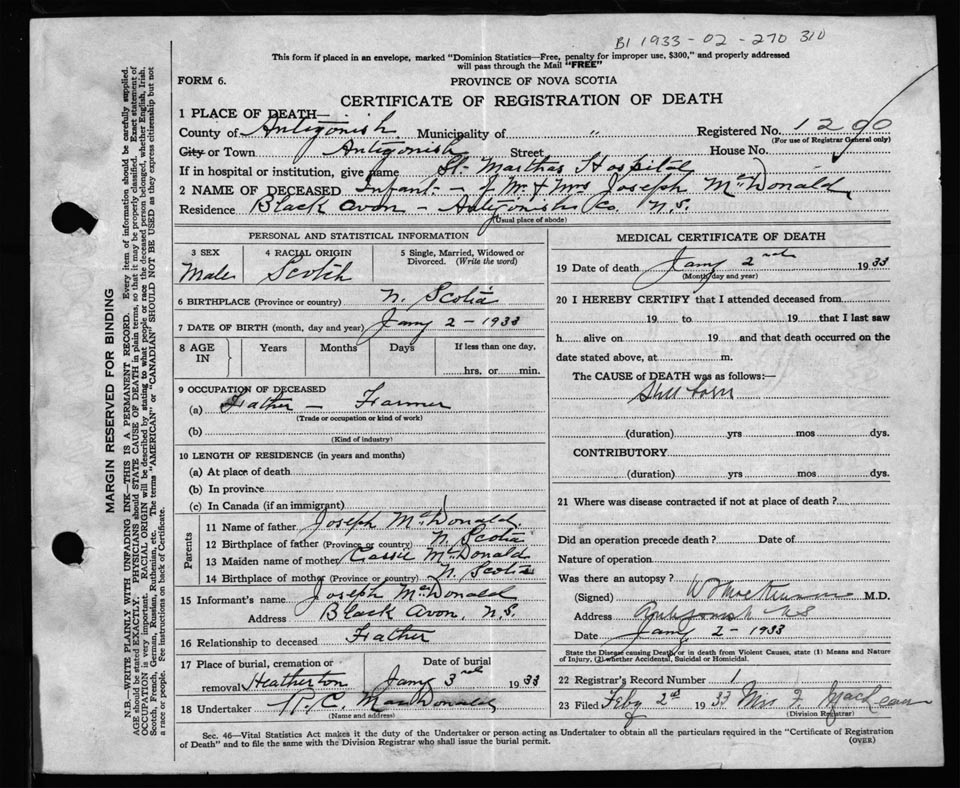 B1 1933-02-270 310
This form if placed in an envelope, marked "Dominion Statistics—Free, penalty for improper use, $300," and properly addressed
will pass through the Mail "FREE"
FORM 6. PROVINCE OF NOVA SCOTIA
CERTIFICATE OF REGISTRATION OF DEATH
1 PLACE OF DEATH—
County of Antigonish Municipality of " Registered No. 1290
(For use of Registrar General only)
City or Town Antigonish Street House No.
If in hospital or institution, give name St. Marthas Hospital
2 NAME OF DECEASED Infant - of Mr & Mrs Joseph McDonald
Residence Black Avon - Antigonish Co. N.S.
(Usual place of abode)
PERSONAL AND STATISTICAL INFORMATION
3 SEX 4 RACIAL ORIGIN 5 Single, Married, Widowed or Divorced. (Write the word)
Male Scotch
6 BIRTHPLACE (Province or country) N. Scotia
7 DATE OF BIRTH (month, day and year) Jany 2 - 1933
8 AGE IN Years Months Days If less than one day.
hrs. or min.
9 OCCUPATION OF DECEASED
(a) Father - Farmer
(Trade or occupation or kind of work)
(b)
(Kind of industry)
10 LENGTH OF RESIDENCE (in years and months)
(a) At place of death
(b) In province
(c) In Canada (if an immigrant)
Parents
11 Name of father Joseph McDonald
12 Birthplace of father (Province or country) N. Scotia
13 Maiden name of mother Cassie McDonald
14 Birthplace of mother (Province or country) N. Scotia
15 Informant's name Joseph McDonald
Address Black Avon, N.S.
16 Relationship to deceased Father
17 Place of burial, cremation or Date of burial
removal Heatherton Jany 3rd 1933
18 Undertaker MacDonald
(Name and address)
MEDICAL CERTIFICATE OF DEATH
19 Date of death Jany 2nd 1933
(Month, day and year)
20 I HEREBY CERTIFY that I attended deceased from
19 to 19 that I last saw
h alive on 19 and that death occurred on the
date stated above, at m.
The CAUSE of DEATH was as follows:—
Still born
(duration) yrs mos dys.
CONTRIBUTORY
(duration) yrs mos dys.
21 Where was disease contracted if not at place of death?
Did an operation precede death? Date of
Nature of operation
Was there an autopsy?
(Signed) M.D.
Address Antigonish NS
Date Jany 2 - 1933
State the Disease causing Death, or in death from Violent Causes, state (1) Means and Nature
of Injury, (2) whether Accidental, Suicidal or Homicidal.
22 Registrar's Record Number 1
23 Filed Feby 2nd 1933 Mrs MacLean
(Division Registrar)
Sec. 46—Vital Statistics Act makes it the duty of the Undertaker or person acting as Undertaker to obtain all the particulars required in the "Certificate of Registration
of Death" and to file the same with the Division Registrar who shall issue the burial permit. (OVER)
MARGIN RESERVED FOR BINDING
N.B.—WRITE PLAINLY WITH UNFADING INK—THIS IS A PERMANENT RECORD. Every item of information should be carefully supplied.
AGE should be stated EXACTLY. PHYSICIANS should STATE CAUSE OF DEATH in plain terms, so that it may be properly classified. Exact statement of
OCCUPATION is very important. RACIAL ORIGIN will be described by stating to what people or race the deceased person belonged, whether English, Irish,
Scotch, French, German, Russian, Ruthenian, etc. The terms "AMERICAN" or "CANADIAN" SHOULD NOT BE USED as they express citizenship but not
a race or people. See instructions on back of Certificate.